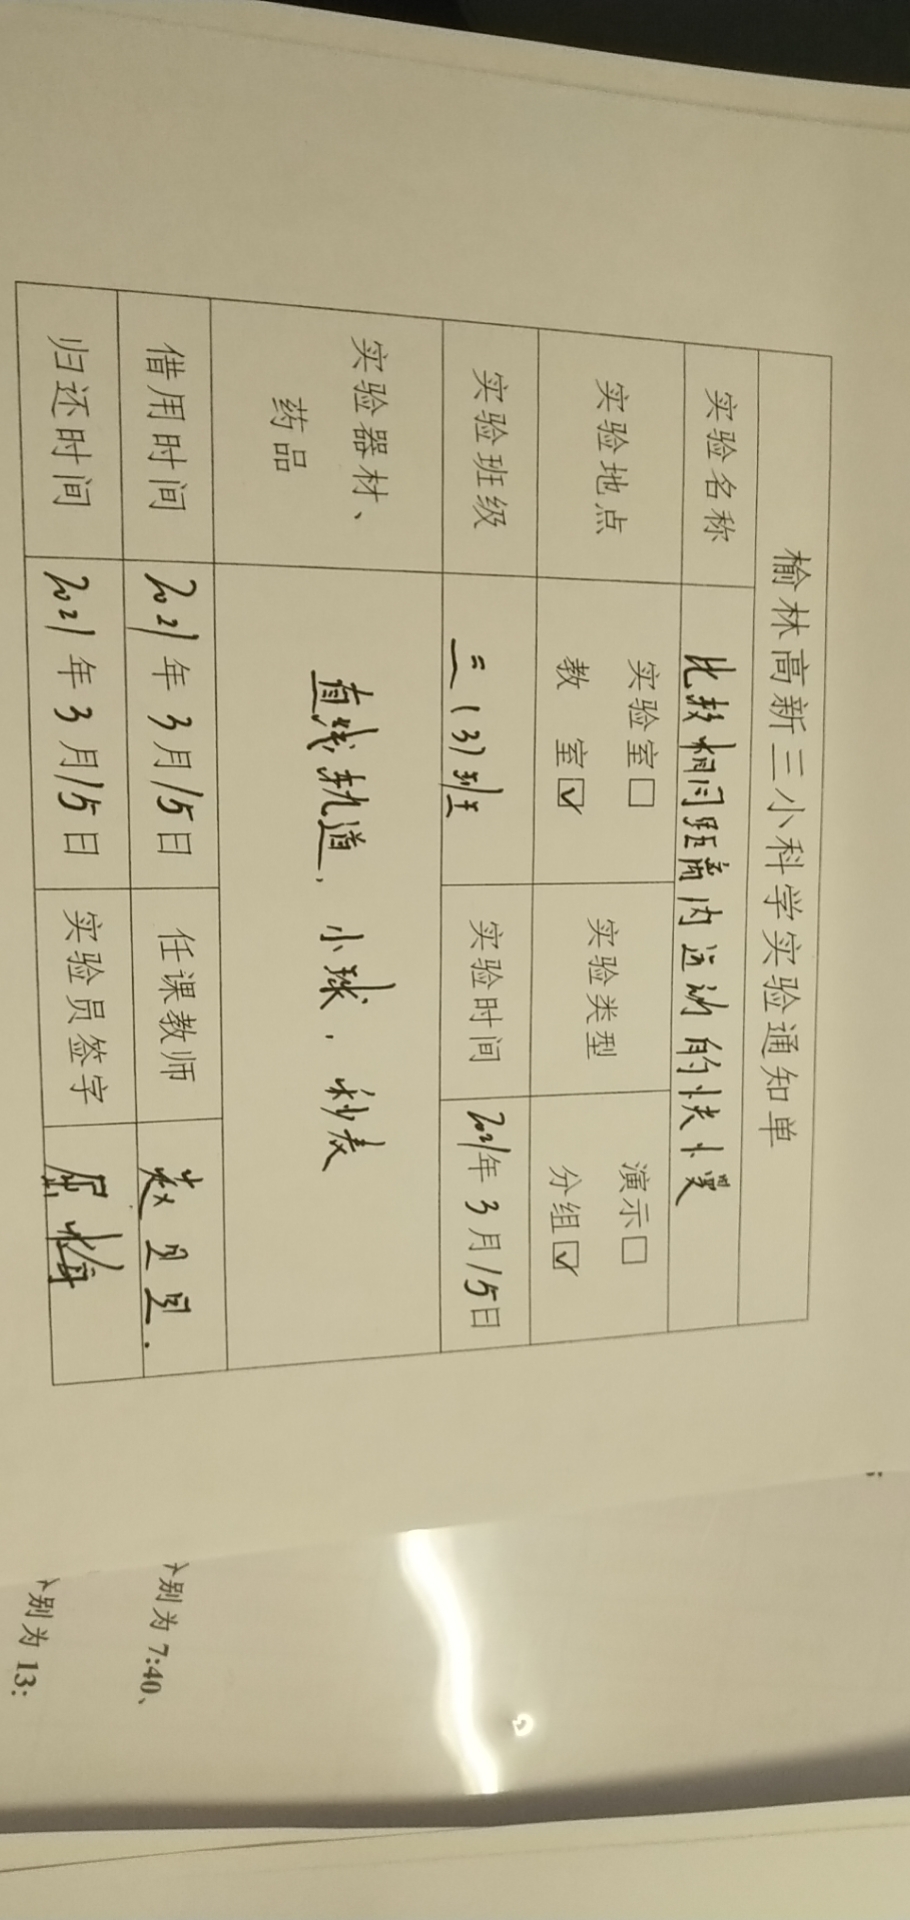 榆林高新三小科学实验通知单
实验名称 比较相同距离内运动的快慢
实验地点 实验室☐ 教 室☑ 实验类型 演示☐ 分组☑
实验班级 三(3)班 实验时间 2021年3月15日
实验器材、
药品
直线轨道,小球,秒表
借用时间 2021年3月15日 任课教师 赵贝贝.
归还时间 2021年3月15日 实验员签字 屈梅
别为 7:40、
别为 13: